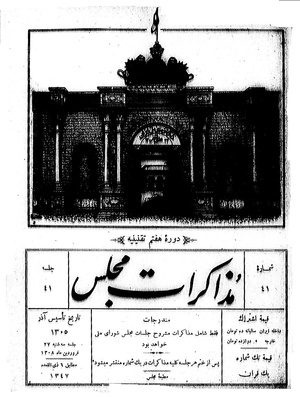 دورهٔ هفتم تقنینیه
شماره
۴۱
مذاکرات مجلس
جلسه
۴۱
قیمت اشتراک
داخله ایران سالیانه ده تومان
خارجه » دوازده تومان
قیمت تک شماره
یک قران
مندرجات
فقط شامل مذاکرات مشروح جلسات مجلس شورای ملی
خواهد بود
پس از ختم هر جلسه کلیه مذاکرات در یک شماره منتشر میشود
مطبعه مجلس
تاریخ تأسیس آذر
۱۳۰۵
جلسه سه شنبه ۲۷
فروردین ماه ۱۳۰۸
مطابق ۶ ذی‌القعده
۱۳۴۷